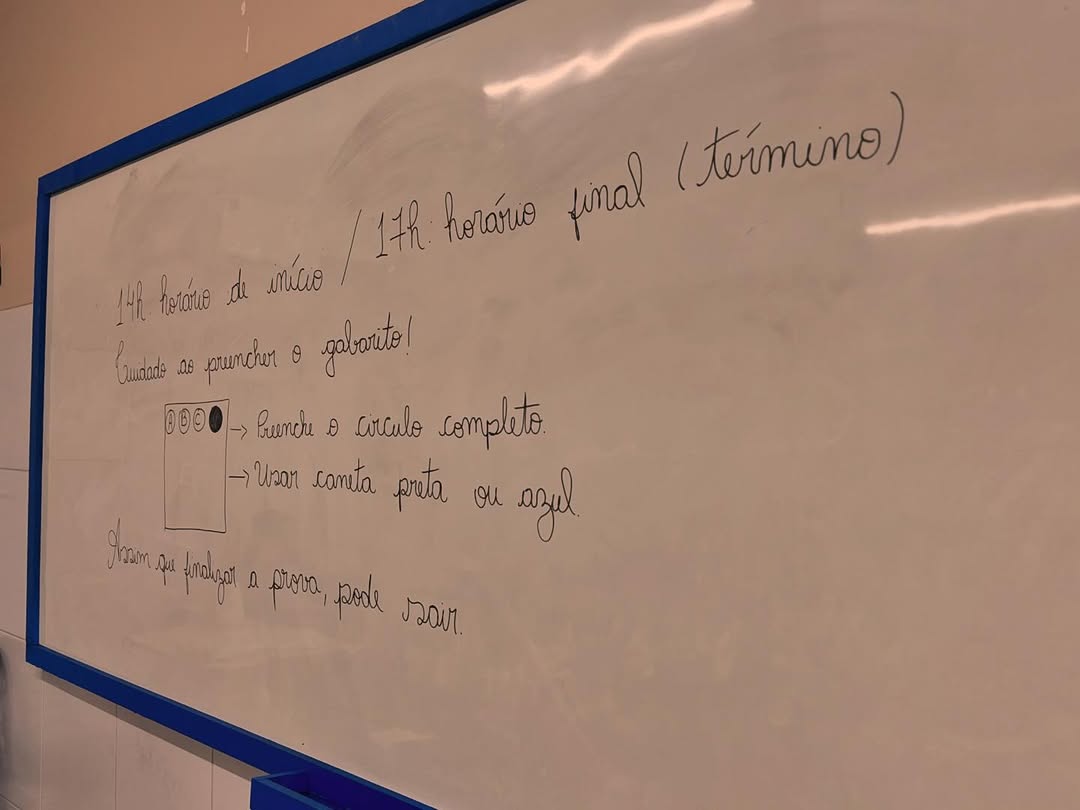 14h: horário de início / 17h: horário final (término)
Cuidado ao preencher o gabarito!
A B C → Preenche o circulo completo.
→ Usar caneta preta ou azul.
Assim que finalizar a prova, pode sair.